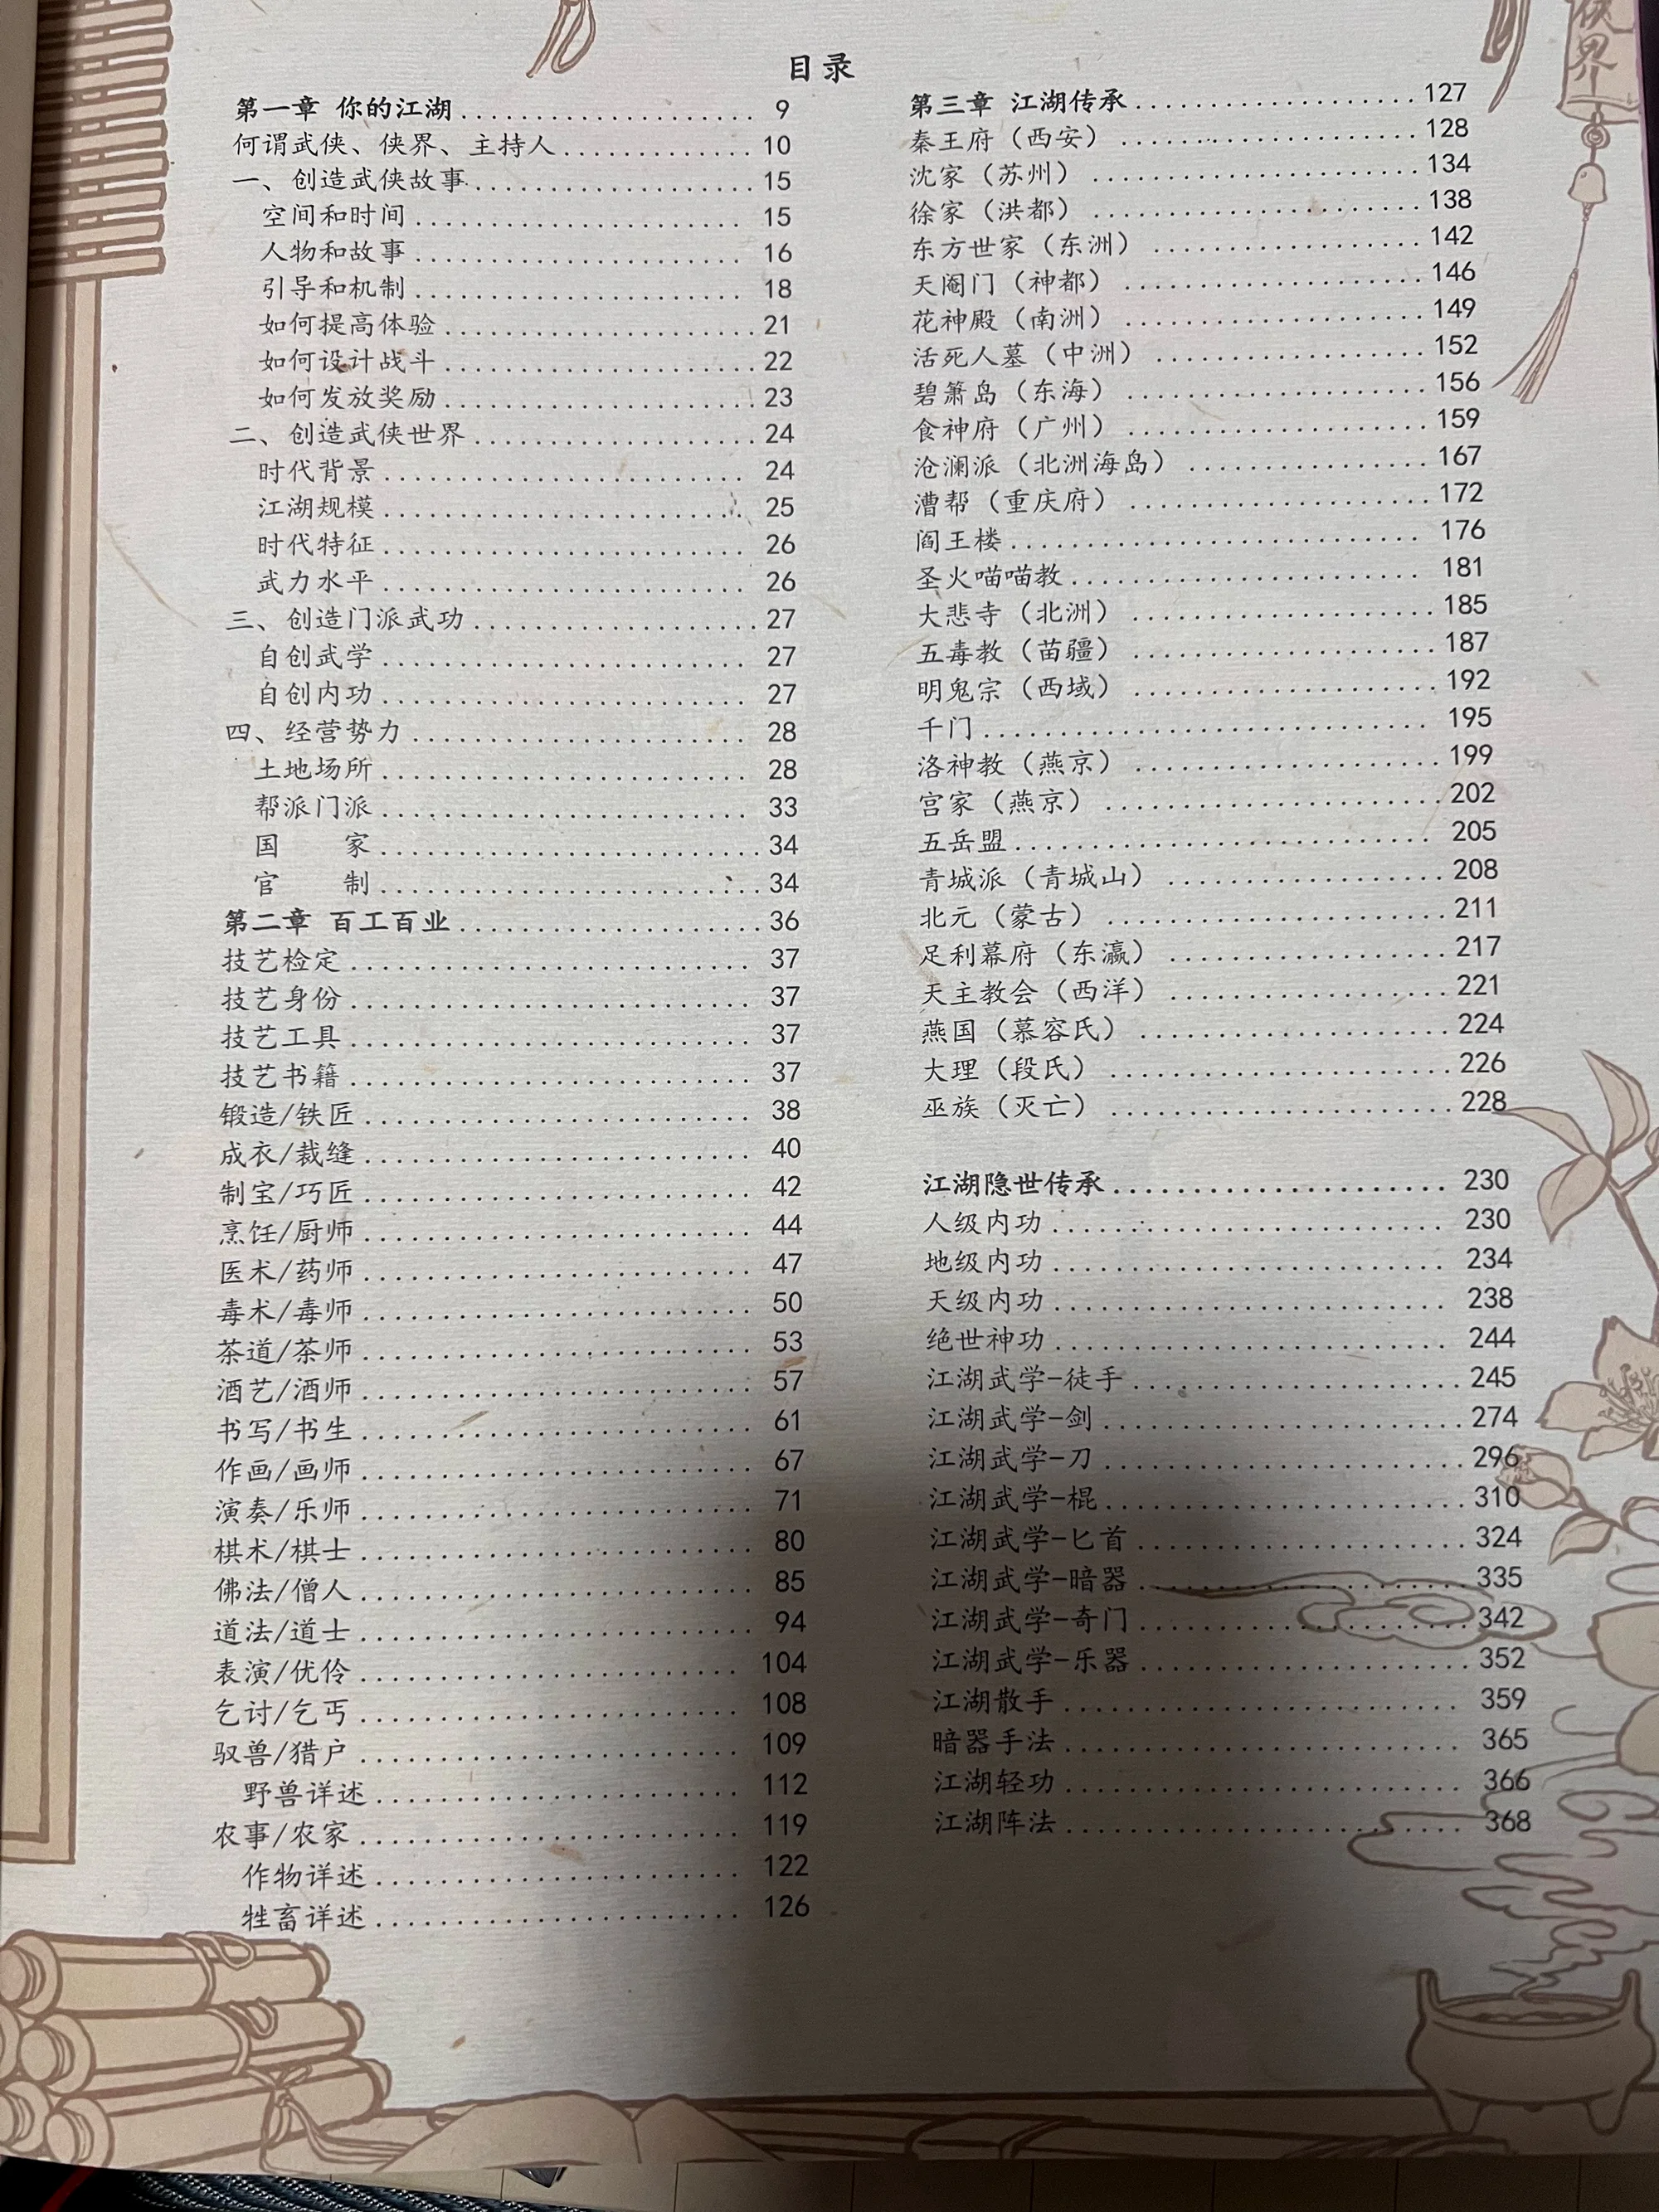 目录
第一章 你的江湖 9
何谓武侠、侠界、主持人 10
一、创造武侠故事 15
空间和时间 15
人物和故事 16
引导和机制 18
如何提高体验 21
如何设计战斗 22
如何发放奖励 23
二、创造武侠世界 24
时代背景 24
江湖规模 25
时代特征 26
武力水平 26
三、创造门派武功 27
自创武学 27
自创内功 27
四、经营势力 28
土地场所 28
帮派门派 33
国 家 34
官 制 34
第二章 百工百业 36
技艺检定 37
技艺身份 37
技艺工具 37
技艺书籍 37
锻造/铁匠 38
成衣/裁缝 40
制宝/巧匠 42
烹饪/厨师 44
医术/药师 47
毒术/毒师 50
茶道/茶师 53
酒艺/酒师 57
书写/书生 61
作画/画师 67
演奏/乐师 71
棋术/棋士 80
佛法/僧人 85
道法/道士 94
表演/优伶 104
乞讨/乞丐 108
驭兽/猎户 109
野兽详述 112
农事/农家 119
作物详述 122
牲畜详述 126
第三章 江湖传承 127
秦王府（西安） 128
沈家（苏州） 134
徐家（洪都） 138
东方世家（东洲） 142
天阉门（神都） 146
花神殿（南洲） 149
活死人墓（中洲） 152
碧箫岛（东海） 156
食神府（广州） 159
沧澜派（北洲海岛） 167
漕帮（重庆府） 172
阎王楼 176
圣火喵喵教 181
大悲寺（北洲） 185
五毒教（苗疆） 187
明鬼宗（西域） 192
千门 195
洛神教（燕京） 199
宫家（燕京） 202
五岳盟 205
青城派（青城山） 208
北元（蒙古） 211
足利幕府（东瀛） 217
天主教会（西洋） 221
燕国（慕容氏） 224
大理（段氏） 226
巫族（灭亡） 228
江湖隐世传承 230
人级内功 230
地级内功 234
天级内功 238
绝世神功 244
江湖武学-徒手 245
江湖武学-剑 274
江湖武学-刀 296
江湖武学-棍 310
江湖武学-匕首 324
江湖武学-暗器 335
江湖武学-奇门 342
江湖武学-乐器 352
江湖散手 359
暗器手法 365
江湖轻功 366
江湖阵法 368
界